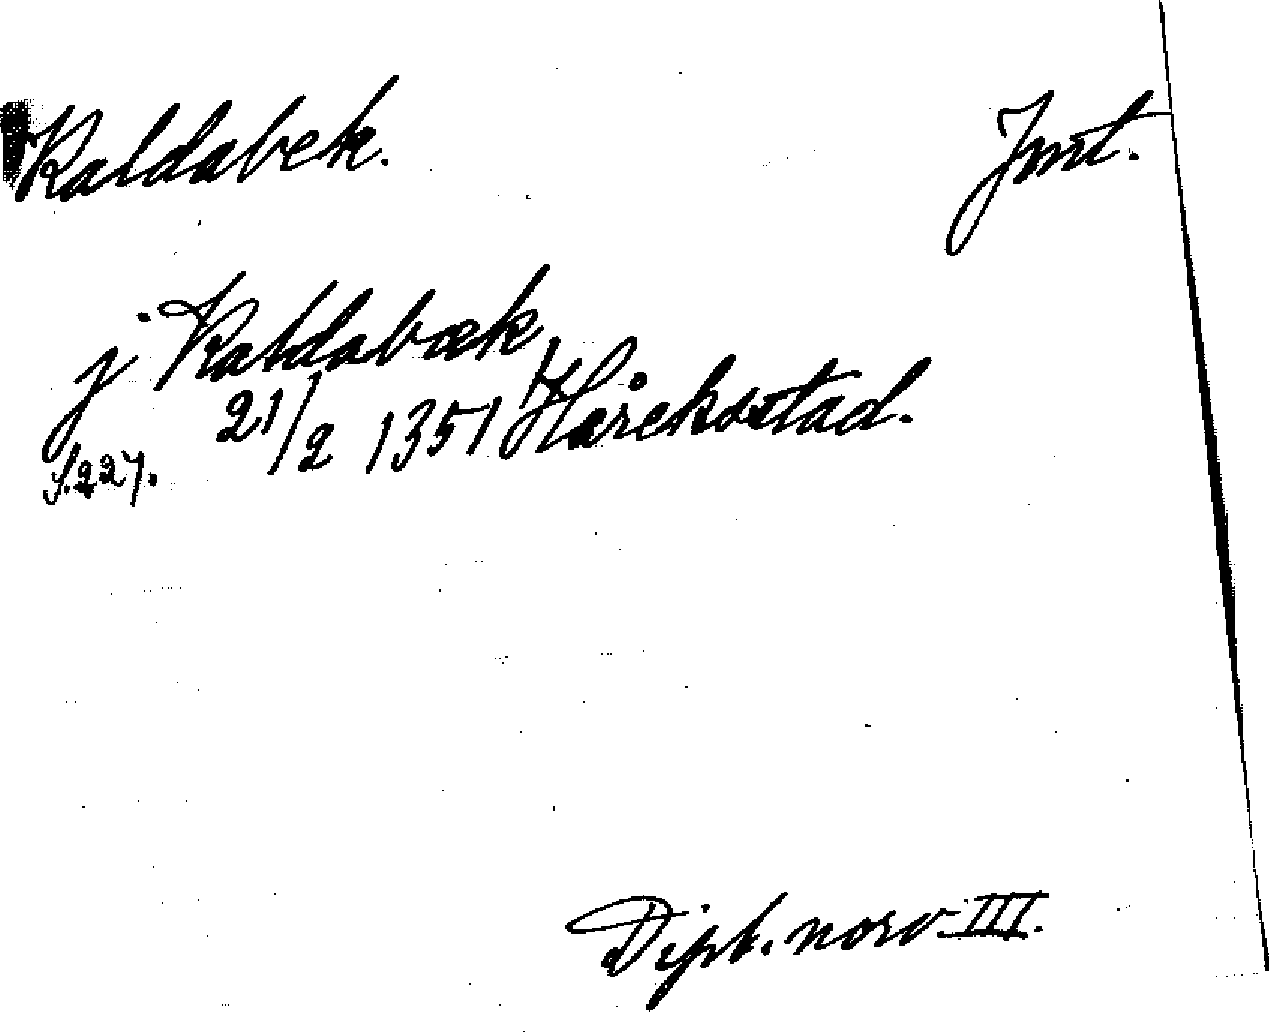 Kaldabek. Jmt.
j Kaldabæk,
21/2 1351 Hårekstad.
S. 227.
Dipl. norv. III.